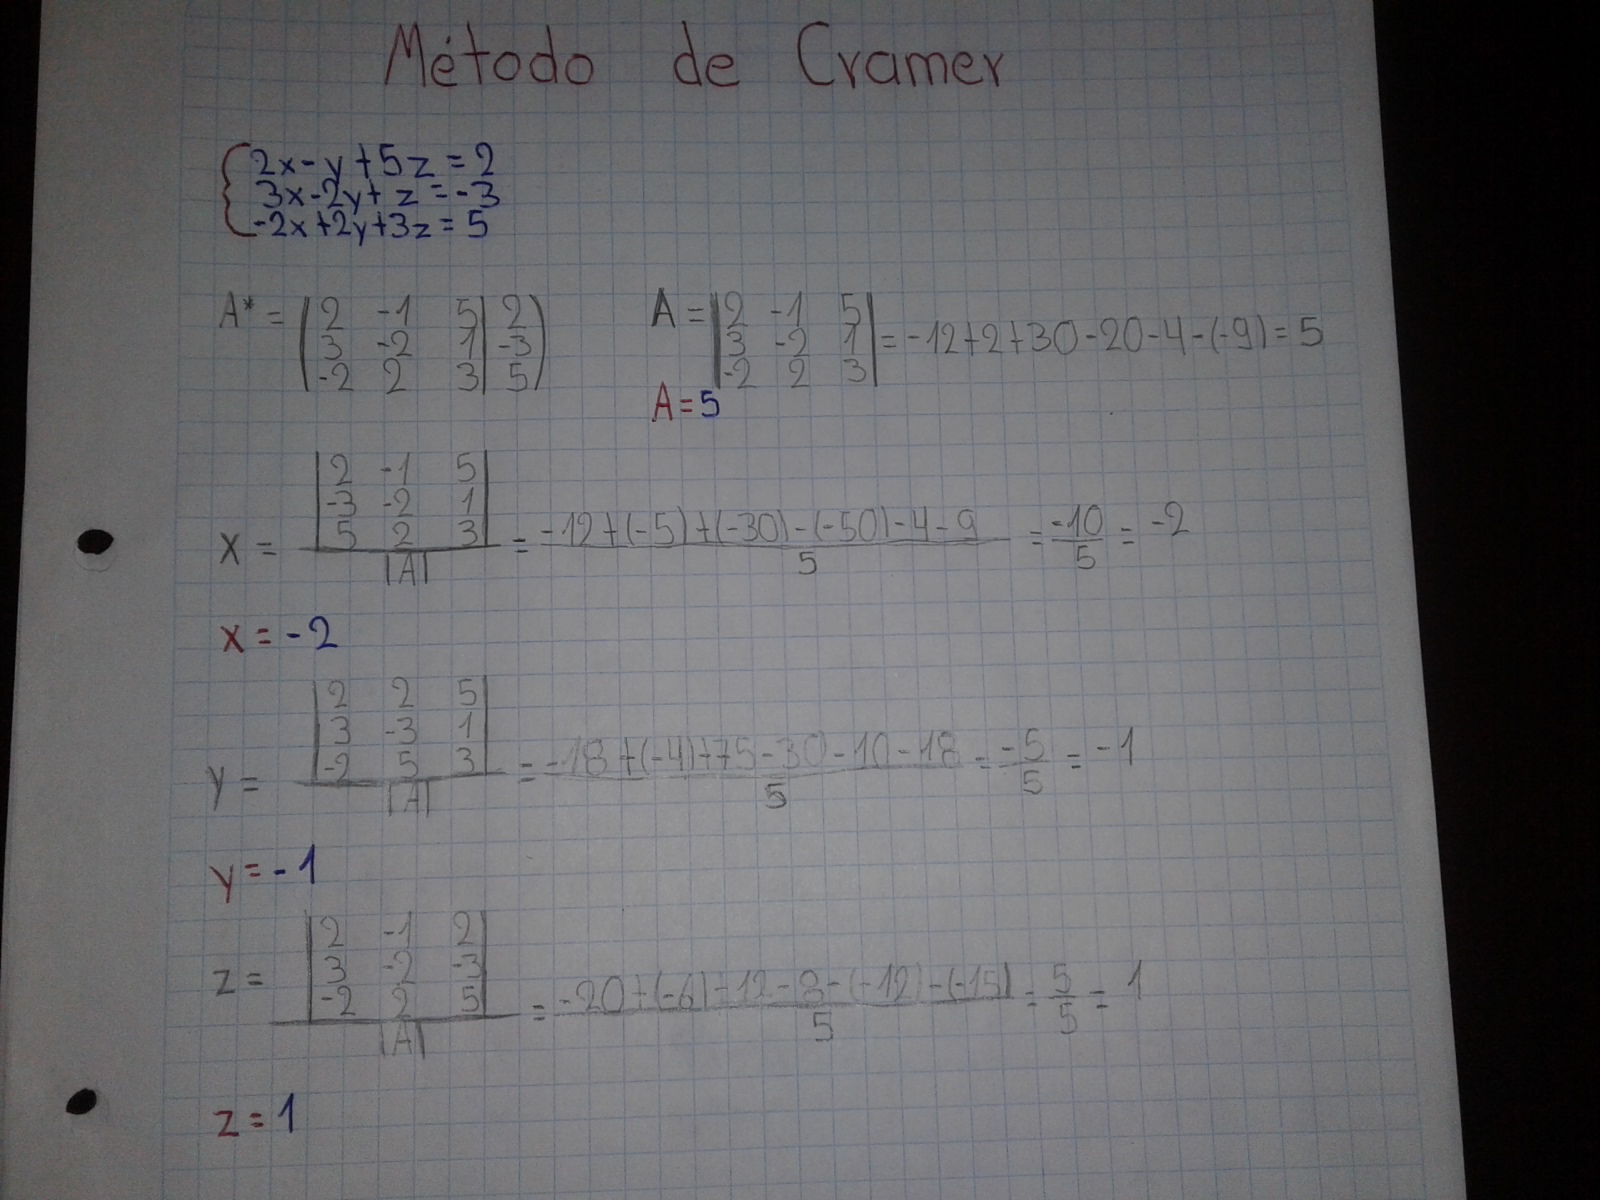 Método de Cramer
2x-y+5z=2
3x-2y+z=-3
-2x+2y+3z=5
A* = 2 -1 5 | 2
3 -2 1 | -3
-2 2 3 | 5
A = |2 -1 5|
|3 -2 1| = -12+2+30-20-4-(-9)=5
|-2 2 3|
A=5
|2 -1 5|
|-3 -2 1|
|5 2 3|
x = |A| = -12+(-5)+(-30)-(-50)-4-9 / 5 = -10/5 = -2
x = -2
|2 2 5|
|3 -3 1|
|-2 5 3|
y = |A| = -18+(-4)+75-30-10-18 / 5 = -5/5 = -1
y = -1
|2 -1 2|
|3 -2 -3|
|-2 2 5|
z = |A| = -20+(-6)+12-8-(-12)-(-15) / 5 = 5/5 = 1
z = 1